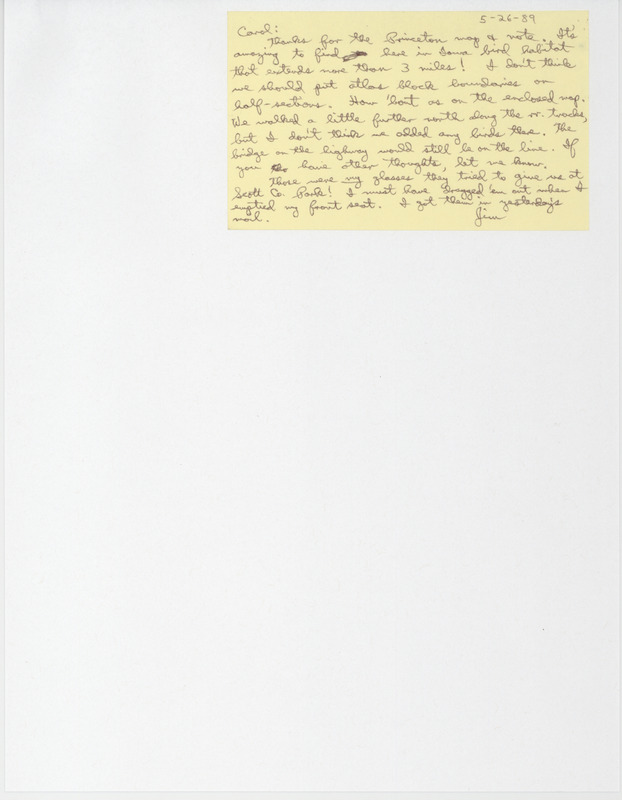 5-26-89
Carol:
Thanks for the Princeton map & note. It's
amazing to find here in Iowa bird habitat
that extends more than 3 miles! I don't think
we should put atlas block boundaries on
half-sections. How 'bout as on the enclosed map.
We walked a little further north along the rr. tracks,
but I don't think we added any birds there. The
bridge on the highway would still be on the line. If
you have other thoughts, let me know.
Those were my glasses they tried to give us at
Scott Co. Park! I must have dragged 'em out when I
emptied my front seat. I got them in yesterday's
mail. Jim